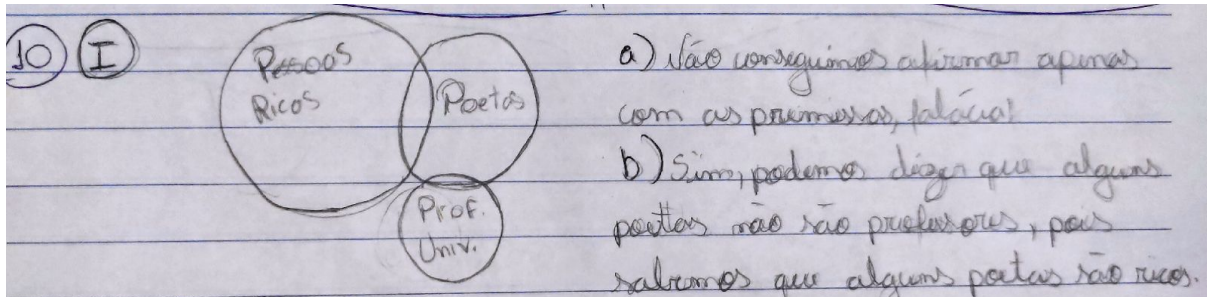 10 I
Pessoas
Ricas
Poetas
Prof.
Univ.
a) Não conseguimos afirmar apenas
com as premissas, falácia!
b) Sim, podemos dizer que alguns
poetas não são professores, pois
sabemos que alguns poetas são ricos.